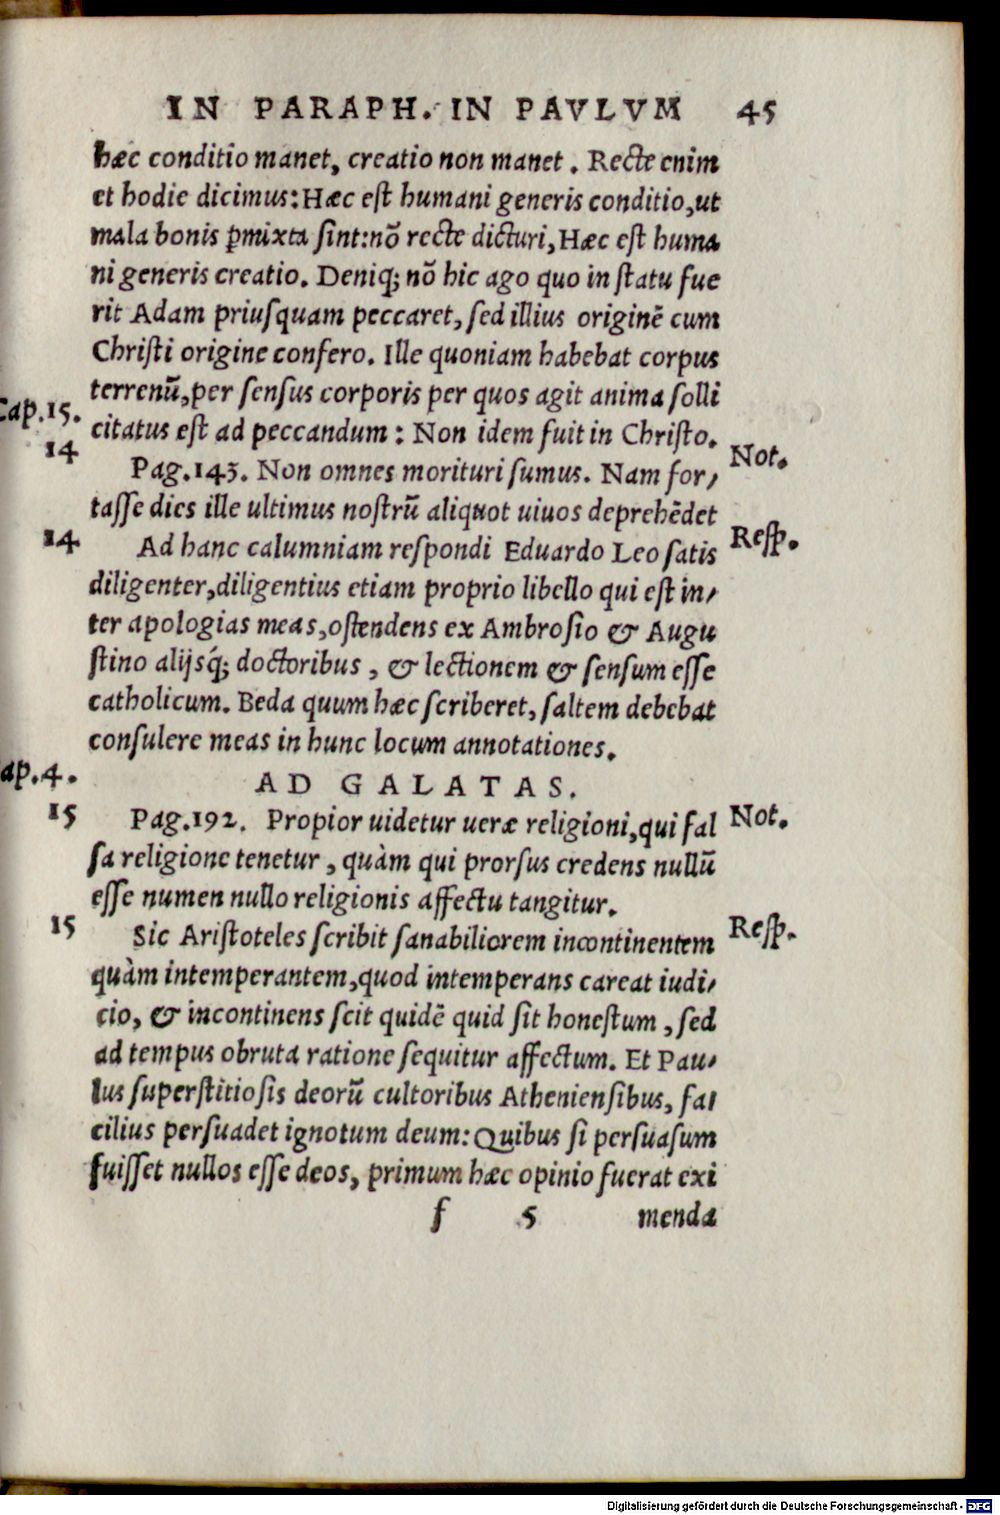 IN PARAPH. IN PAVLVM 45
hæc conditio manet, creatio non manet. Recte enim
et hodie dicimus: Hæc est humani generis conditio, ut
mala bonis ꝑmixta sint: nõ recte dicturi, Hæc est huma
ni generis creatio. Deniq; nõ hic ago quo in statu fue
rit Adam priusquam peccaret, sed illius originẽ cum
Christi origine confero. Ille quoniam habebat corpus
terrenũ, per sensus corporis per quos agit anima solli
Cap.15.
citatus est ad peccandum: Non idem fuit in Christo.
14 Pag.143. Non omnes morituri sumus. Nam for⸗ Not.
tasse dies ille ultimus nostrũ aliquot uiuos deprehẽdet
14 Ad hanc calumniam respondi Eduardo Leo satis Resp.
diligenter, diligentius etiam proprio libello qui est in⸗
ter apologias meas, ostendens ex Ambrosio & Augu
stino alijsq́; doctoribus, & lectionem & sensum esse
catholicum. Beda quum hæc scriberet, saltem debebat
consulere meas in hunc locum annotationes.
ap.4. AD GALATAS.
15 Pag.192. Propior uidetur ueræ religioni, qui fal Not.
sa religione tenetur, quàm qui prorsus credens nullũ
esse numen nullo religionis affectu tangitur.
15 Sic Aristoteles scribit sanabiliorem incontinentem Resp.
quàm intemperantem, quod intemperans careat iudi⸗
cio, & incontinens scit quidẽ quid sit honestum, sed
ad tempus obruta ratione sequitur affectum. Et Pau⸗
lus superstitiosis deorũ cultoribus Atheniensibus, fa⸗
cilius persuadet ignotum deum: Quibus si persuasum
fuisset nullos esse deos, primum hæc opinio fuerat exi
f 5 menda
Digitalisierung gefördert durch die Deutsche Forschungsgemeinschaft - DFG